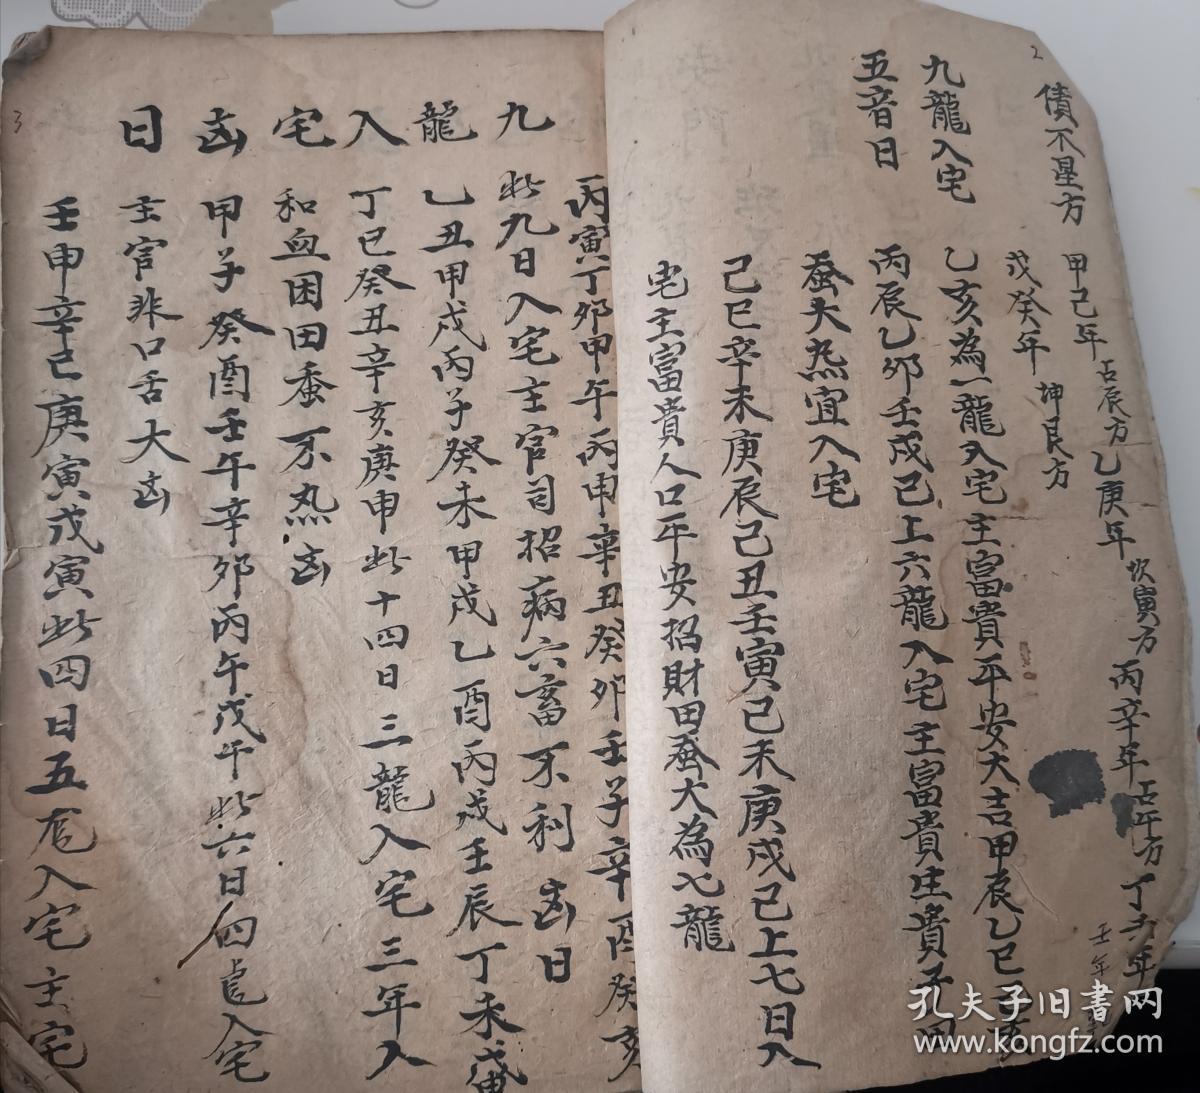 2
債不星方
甲己年占辰方乙庚年坎寅方丙辛年占午方丁
戊癸年坤艮方
壬年
九龍入宅
五音日
乙亥為一龍入宅主富貴平安大吉甲辰乙巳
丙辰乙卯壬戌己上六龍入宅主富貴生貴子田
蚕大熟宜入宅
己巳辛未庚辰己丑壬寅己未庚戌己上七日入
宅主富貴人口平安招財田蚕大為七龍
3
九龍入宅凶日
丙寅丁卯甲午丙申辛丑癸卯壬子辛酉癸亥
此九日入宅主官司招病六畜不利凶日
乙丑甲戌丙子癸未甲戌乙酉丙戌壬辰丁未
丁巳癸丑辛亥庚申此十四日三龍入宅三年入
和血困田蚕不熟凶
甲子癸酉壬午辛卯丙午戊午此六日四龙入宅
主官非口舌大凶
壬申辛己庚寅戊寅此四日五龙入宅主宅
孔夫子旧書网
www.kongfz.com